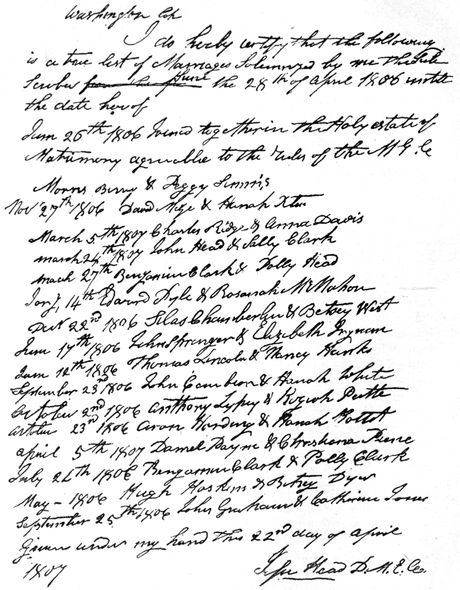 Washington
I do hereby certify that the following
is a true list of Marriages Solemnized by me the Sub
scriber the 28th of April 1806 untill
the date hereof
June 26th 1806 Joined together in the Holy estate of
Matrimony agreeable to the rules of the M. E. C.
Morris Berry & Peggy Simms
Nov 27th 1806 David Mige & Hanah
March 5th 1807 Charles Ridge & Anna Davis
March 24th 1807 John Head & Sally Clark
March 27th Benjamin Clark & Dolly Head
Jany 14th Edward Pyle & Rosanah McMahon
Dect 22nd 1806 Silas Chamberlin & Betsey West
June 17th 1806 John Springer & Elizabeth Ingram
June 12th 1806 Thomas Lincoln & Nancy Hanks
September 23rd 1806 John Cambron & Hanah White
October 2nd 1806 Anthony Lypey & Keziah Putte
October 23rd 1806 Aron Harding & Hanah Pottet
April 5th 1807 Daniel Payne & Christiana Pierce
July 26th 1806 Benjamin Clark & Polly Clark
May – 1806 Hugh Haskins & Betsey Dyer
September 25th 1806 John Graham & Catherine Jones
Given under my hand this 22nd day of April
1807 Jesse Head D. M. E. C.